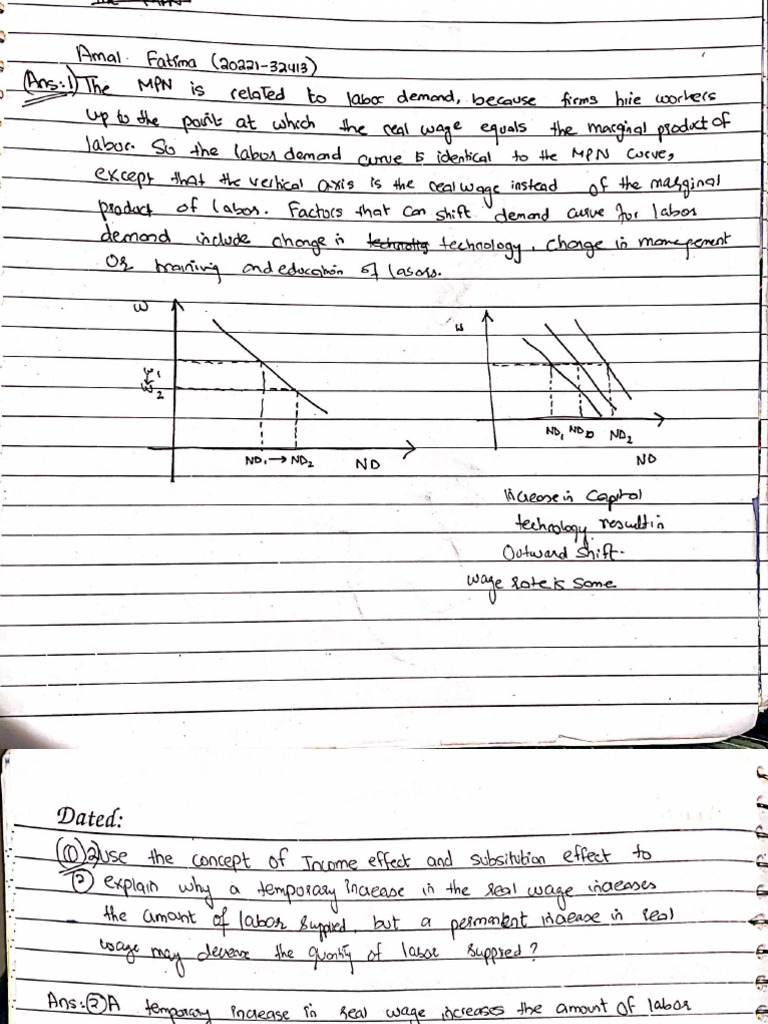 Amal Fatima (20221-32413)
Ans:1) The MPN is related to labor demand, because firms hire workers
up to the point at which the real wage equals the marginal product of
labor. So the labor demand curve is identical to the MPN curve,
except that the vertical axis is the real wage instead of the marginal
product of labor. Factors that can shift demand curve for labor
demand include change in technology, change in management
or training and education of labors.
w
w
w1
w2
ND1 → ND2 ND
ND1 ND ND2
ND
Increase in Capital
technology result in
Outward shift.
wage rate is same
Dated:
Q2) Use the concept of Income effect and subsitution effect to
explain why a temporary increase in the real wage increases
the amount of labor supplied, but a permanent increase in real
wage may decrease the quantity of labor supplied?
Ans:2) A temporary increase in real wage increases the amount of labor